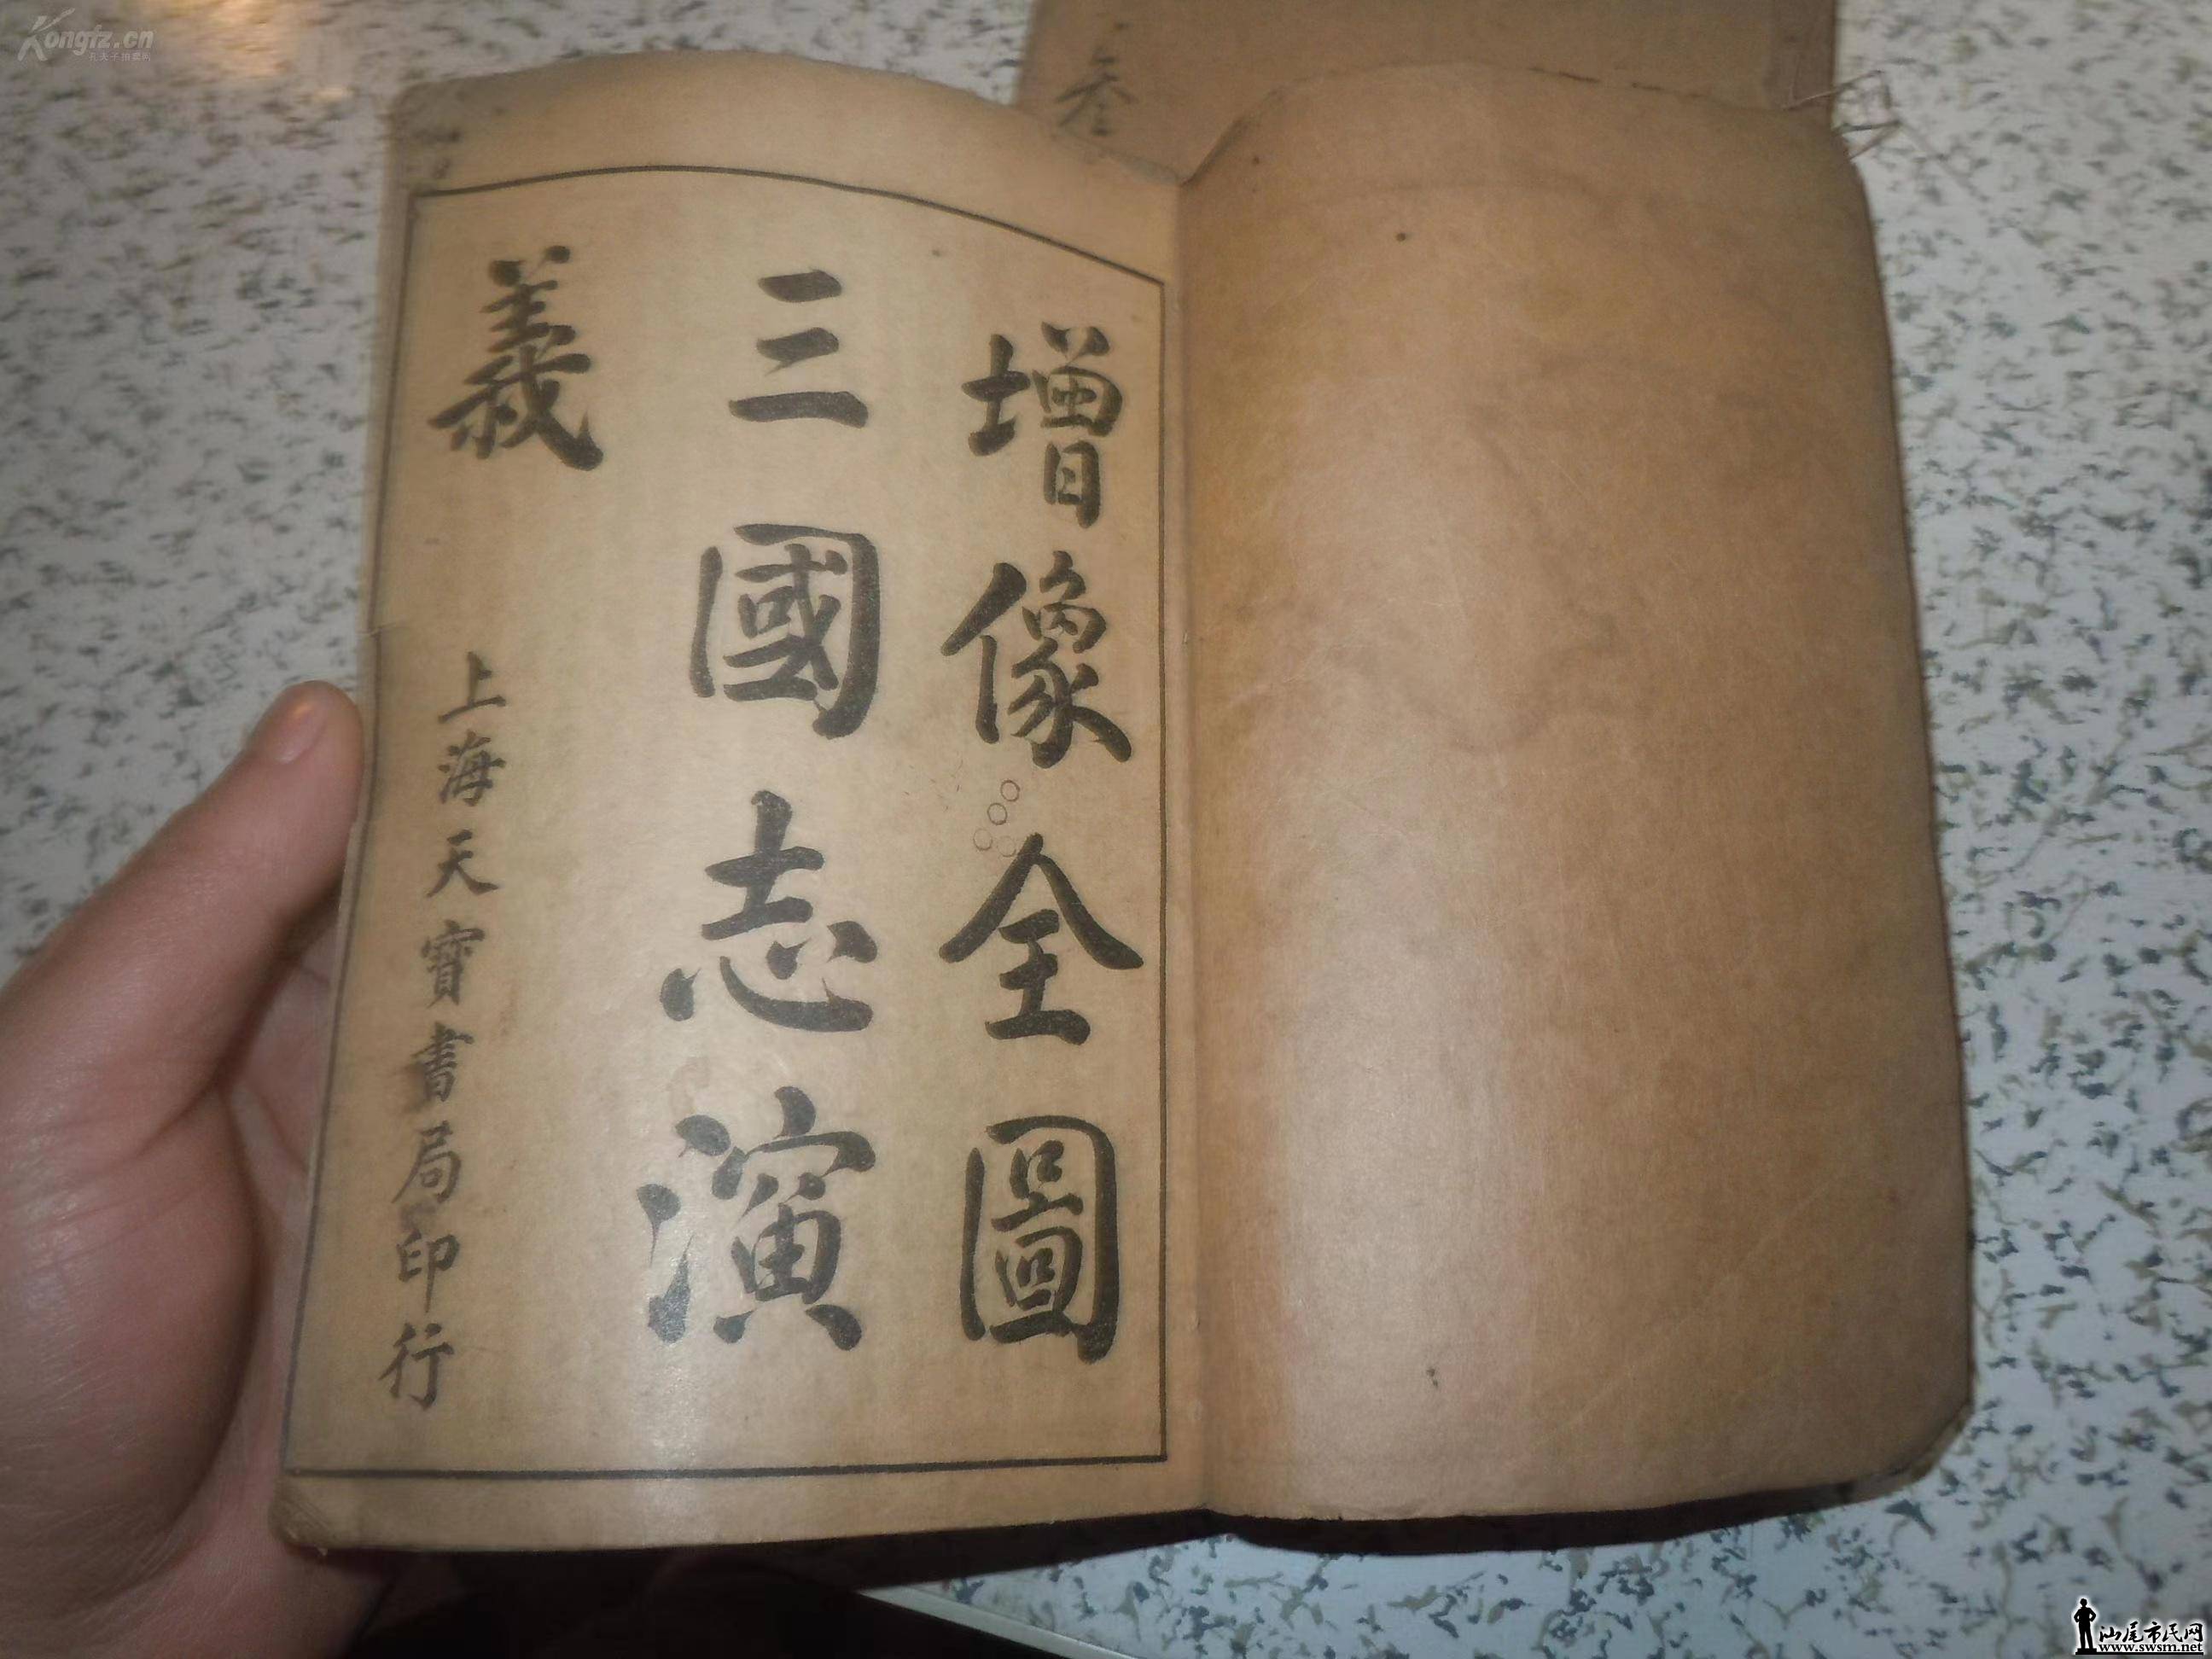 增像全圖
三國志演
義
上海天寶書局印行
叄
Kongfz.cn
孔夫子拍卖网
汕尾市民网
www.swsm.net